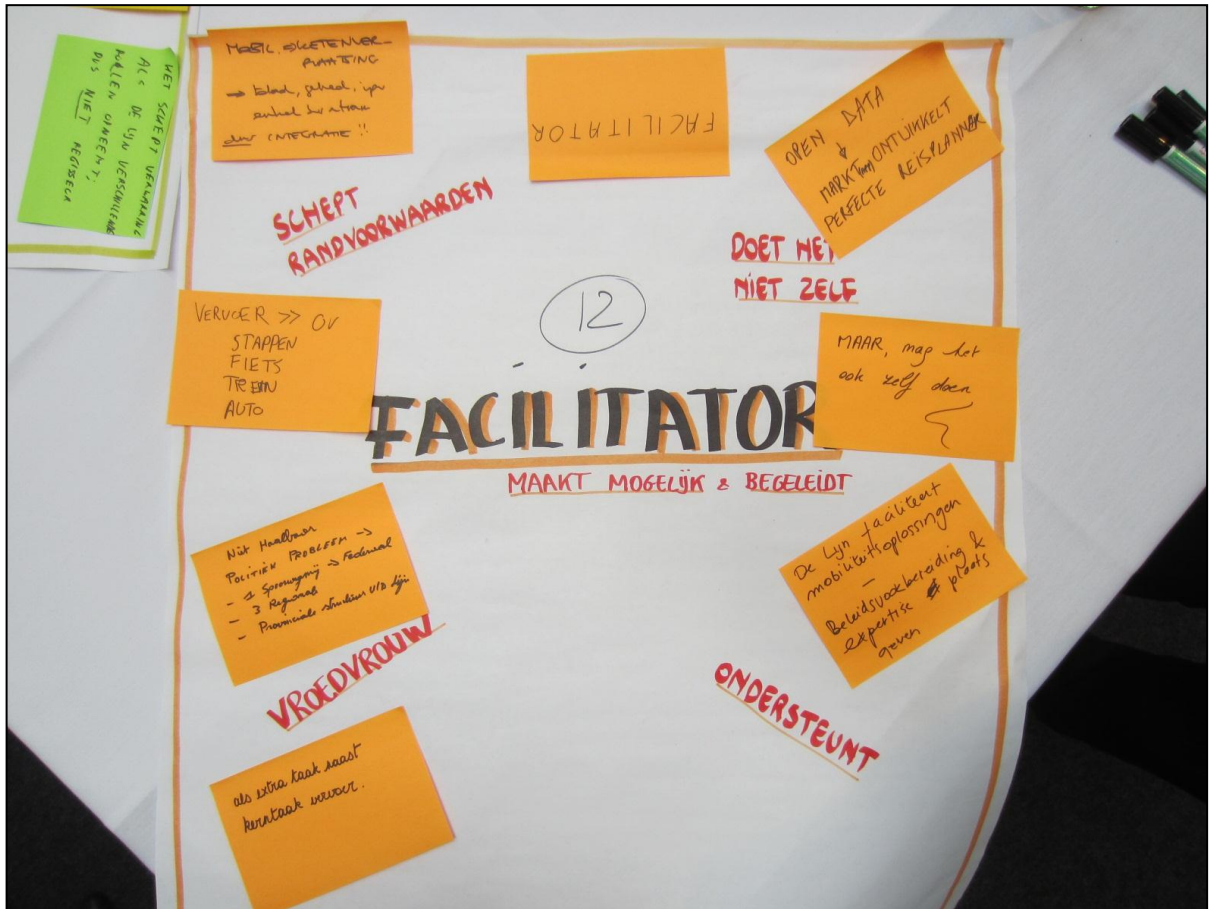 HET SCHEPT VERWARRING
ALS DE LIJN VERSCHILLENDE
ROLLEN OPNEEMT;
DUS NIET REGISSEUR
MOBIL. & KETENVER-
PLAATSING
INTEGRATIE !!
FACILITATOR
OPEN DATA
MARKT ONTWIKKELT
PERFECTE REISPLANNER
SCHEPT
RANDVOORWAARDEN
DOET HET
NIET ZELF
12
VERVOER >> OV
STAPPEN
FIETS
TREIN
AUTO
MAAR, mag het
ook zelf doen
FACILITATOR
MAAKT MOGELIJK & BEGELEIDT
Niet Haalbaar
POLITIEK PROBLEEM →
- 1 Spoorwegmij → Federaal
- 3 Regionale
- Provinciale structuur V/D Lijn
De Lijn faciliteert
mobiliteitsoplossingen
-
Beleidsvoorbereiding &
expertise plaats
geven
VROEDVROUW
ONDERSTEUNT
als extra taak naast
kerntaak vervoer.